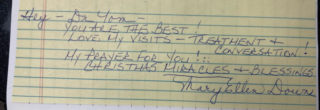 Hey - Dr Yom -
YOU ARE THE BEST!
LOVE MY VISITS - TREATMENT &
CONVERSATION!
MY PRAYER FOR YOU!!
CHRISTMAS MIRACLES & BLESSINGS
Mary Ellen Down